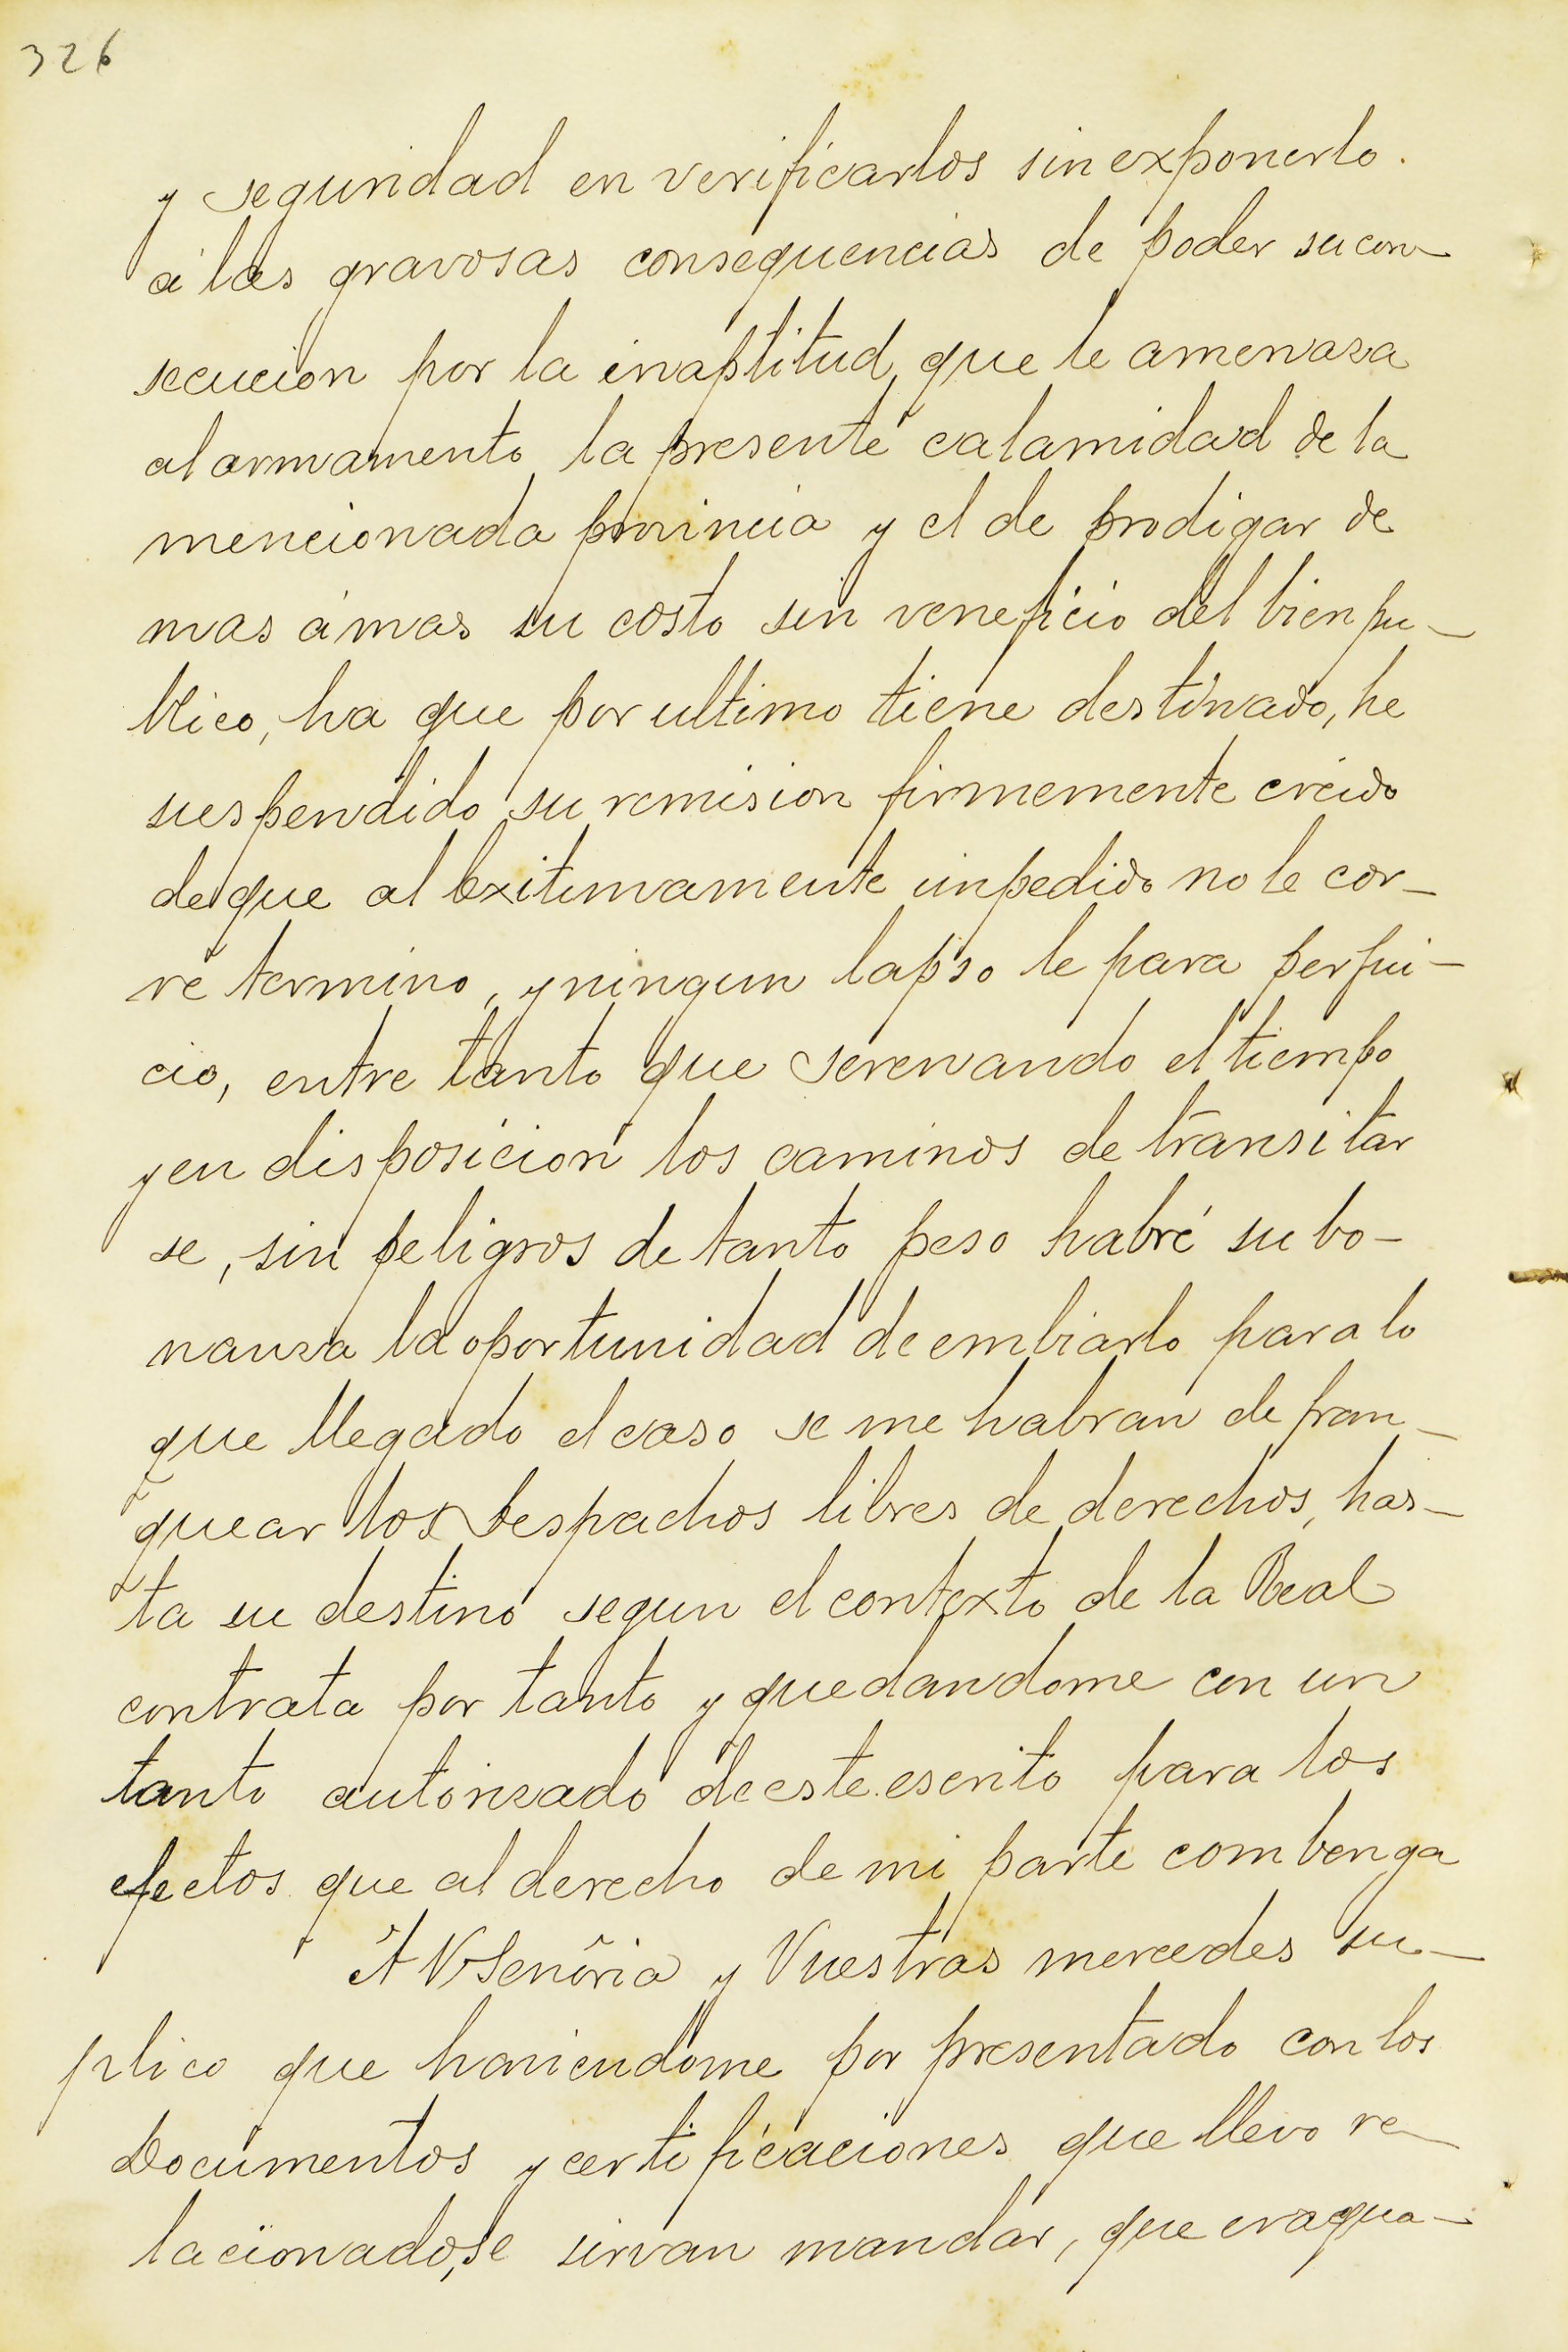 326
y seguridad en verificarlos sin exponerlo
á las gravosas consequencias de poder su con
secucion por la inaptitud, que le amenaza
al armamento, la presente calamidad de la
mencionada provincia y el de prodigar de
mas á mas su costo sin veneficio del bien pu-
blico, ha que por ultimo tiene destinado, he
suspendido su remision firmemente creido
de que al lexitimamente impedido no le cor-
re termino, y ningun lapso le para perjui-
cio, entre tanto que serenando el tiempo
y en disposicion los caminos de transitar
se, sin peligros de tanto peso habré su bo-
nanza la oportunidad de embiarlo para lo
que llegado el caso se me habran de fran-
quear los despachos libres de derechos, has-
ta su destino segun el contexto de la Real
contrata por tanto y quedandome con un
tanto autorizado de este escrito para los
efectos que al derecho de mi parte combenga
A V Señoria y Vuestras mercedes su-
plico que haviendome por presentado con los
Documentos y certificaciones que llevo re-
lacionado, se sirvan mandar, que evaqua-